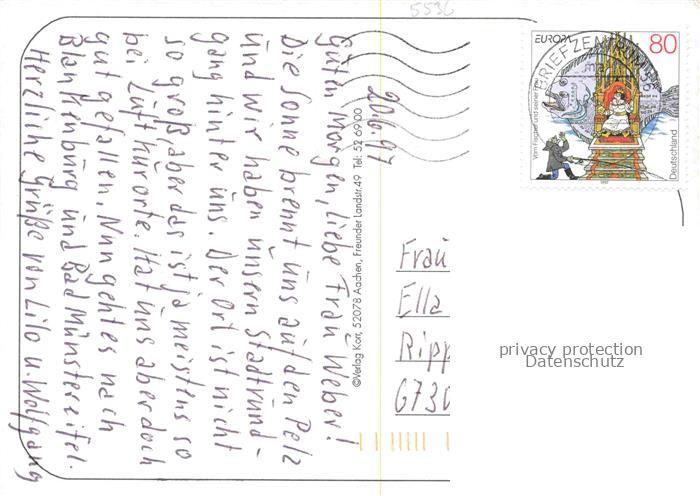 5536
20.6.97
Guten Morgen, liebe Frau Weber!
Die Sonne brennt uns auf den Pelz
und wir haben unsern Stadtrund-
gang hinter uns. Der Ort ist nicht
so groß, aber das ist ja meistens so
bei Luftkurorte. Hat uns aber doch
gut gefallen. Nun geht es nach
Blankenburg und Bad Münstereifel.
Herzliche Grüße von Lilo u. Wolfgang
©Verlag Korr, 52078 Aachen, Freunder Landstr.49 Tel: 52 69 00
EUROPA
80
Vom Fischer und seiner Frau
Deutschland
1997
BRIEFZENTRUM
Frau
Ella
Ripp
6730
privacy protection
Datenschutz